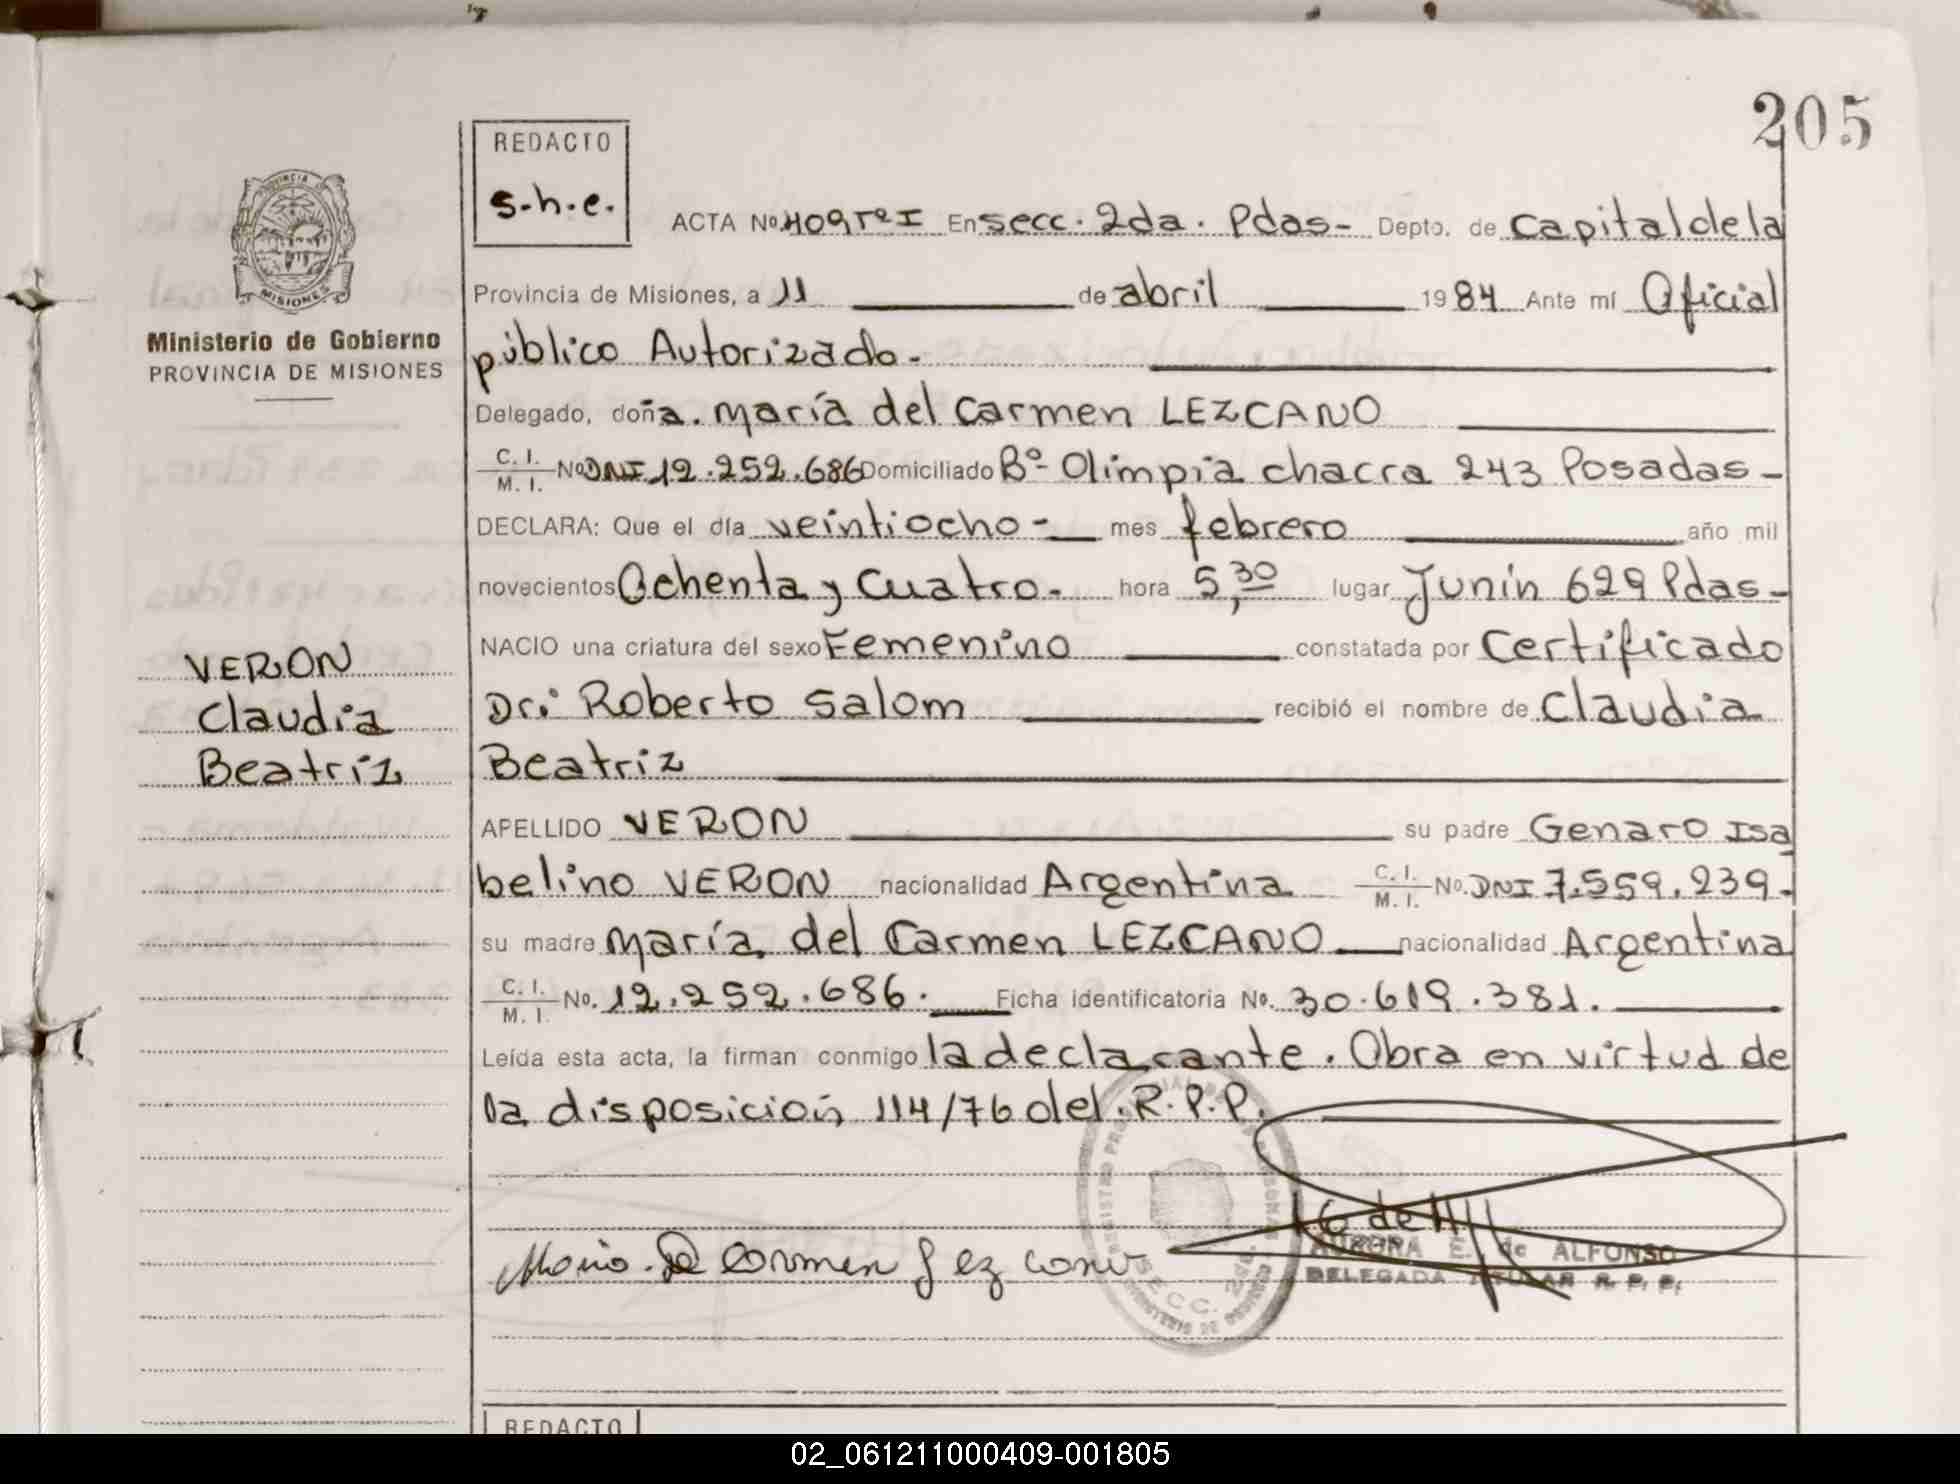 205
REDACTO
s.h.e.
ACTA No. 409 Tº I En secc. 2da. Pdas- Depto. de Capital de la
Provincia de Misiones, a 11 de abril 1984 Ante mí Oficial
público Autorizado-
Delegado, doña. María del Carmen LEZCANO
C. I. / M. I. No DNI 12.252.686 Domiciliado Bº- Olimpia chacra 243 Posadas-
DECLARA: Que el día veintiocho- mes febrero año mil
novecientos Ochenta y Cuatro- hora 5,30 lugar Junín 629 Pdas-
NACIO una criatura del sexo Femenino constatada por Certificado
Dr: Roberto Salom recibió el nombre de Claudia
Beatriz
APELLIDO VERON su padre Genaro Isa
belino VERON nacionalidad Argentina C. I. / M. I. No. DNI 7.559.239-
su madre María del Carmen LEZCANO nacionalidad Argentina
C. I. / M. I. No. 12.252.686. Ficha identificatoria No. 30.619.381.
Leída esta acta, la firman conmigo la declarante. Obra en virtud de
la disposición 114/76 del R.P.P.
PROVINCIA
MISIONES
Ministerio de Gobierno
PROVINCIA DE MISIONES
VERON
Claudia
Beatriz
Maria del Carmen Lezcano
SECC. 2da.
AURORA E. de ALFONSO
DELEGADA TITULAR R. P. P.
REDACTO
02_061211000409-001805